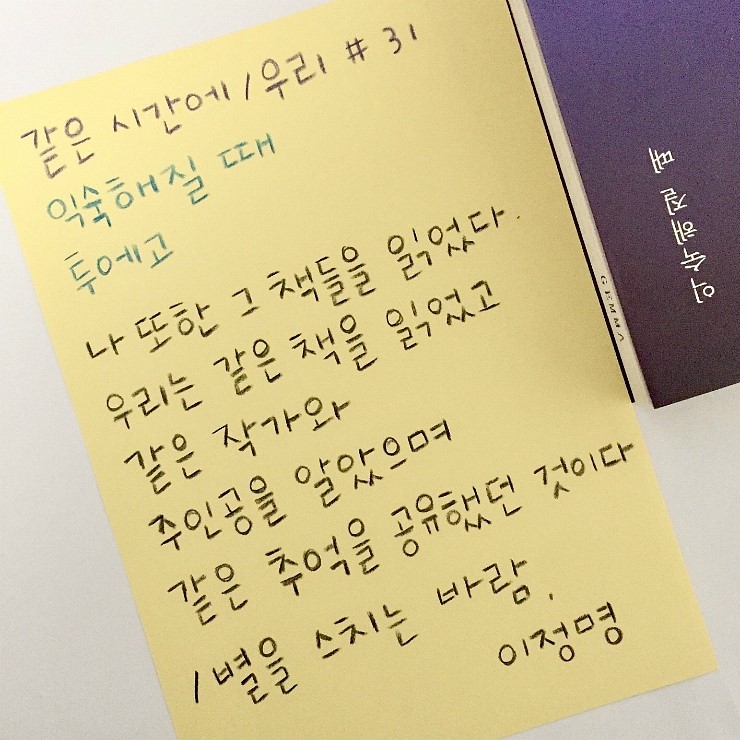 같은 시간에/우리 #31
익숙해질 때
투에고
나 또한 그 책들을 읽었다.
우리는 같은 책을 읽었고
같은 작가와
주인공을 알았으며
같은 추억을 공유했던 것이다
/별을 스치는 바람,
이정명
익숙해질 때
GEMMA